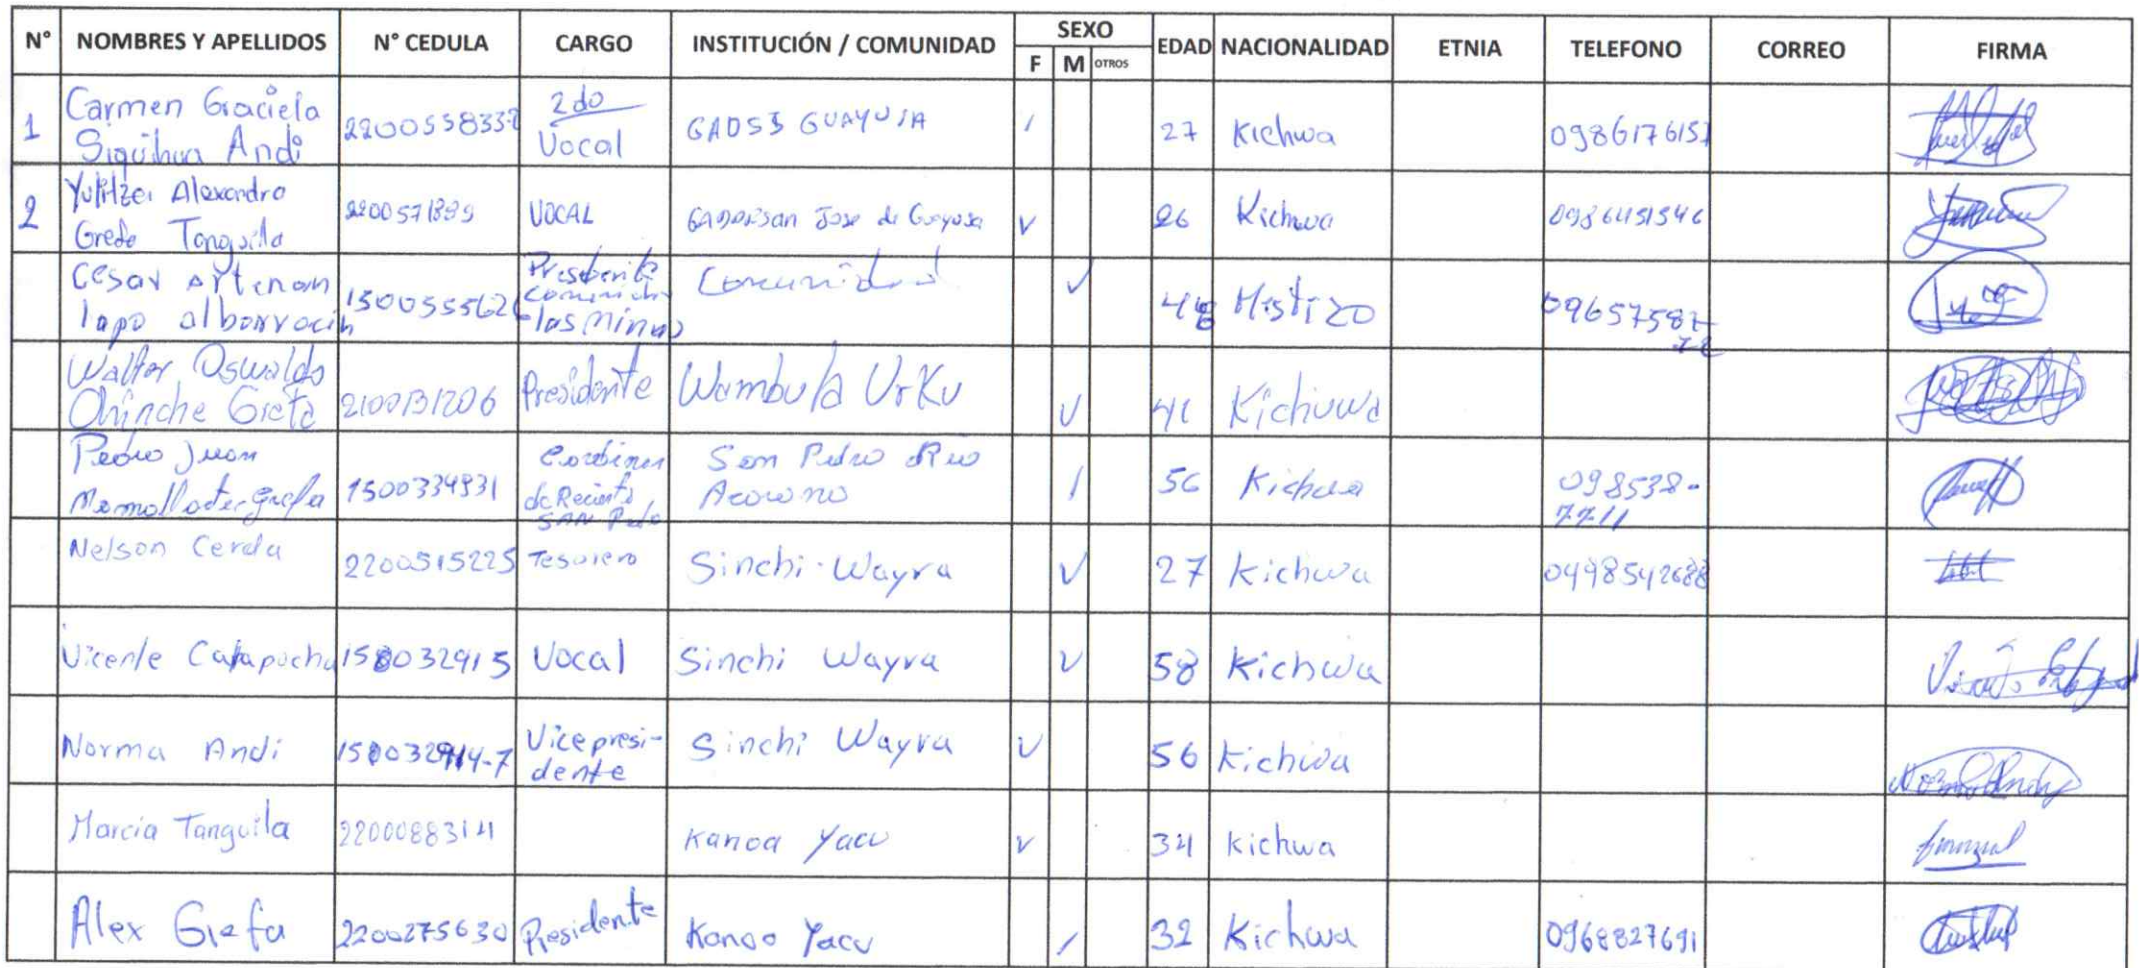 N° NOMBRES Y APELLIDOS N° CEDULA CARGO INSTITUCIÓN / COMUNIDAD SEXO F M OTROS EDAD NACIONALIDAD ETNIA TELEFONO CORREO FIRMA
1 Carmen Graciela Siquihua Andi 2200558337 2do Vocal GADSJ GUAYUSA / 27 Kichwa 0986176157
2 Yulitza Alexandra Grefa Tanguila 2200571889 VOCAL San Jose de Guayusa V 26 Kichwa 0986451546
Cesar lapo albarracin 1500555626 Presidente comunidad las minas Comunidad ✓ 48 Mestizo 0965758772
Walter Oswaldo Chinche Grefa 2100131206 Presidente Wambula Urku V 41 Kichuwa
Pedro Juan Mamallacta Grefa 1500334931 de Recinto SAN Pedro San Pedro Rio / 56 Kichwa 098538-7711
Nelson Cerda 2200515225 Tesorero Sinchi-Wayra V 27 Kichwa 0998542688
Vicente Catapucha 150032915 Vocal Sinchi Wayra V 58 Kichwa
Norma Andi 150032914-7 Vicepresi-dente Sinchi Wayra V 56 Kichwa
Marcia Tanguila 2200088314 Kanoa Yacu V 34 Kichwa
Alex Grefa 2200275630 Presidente Kanoa Yacu / 32 Kichwa 0968827691